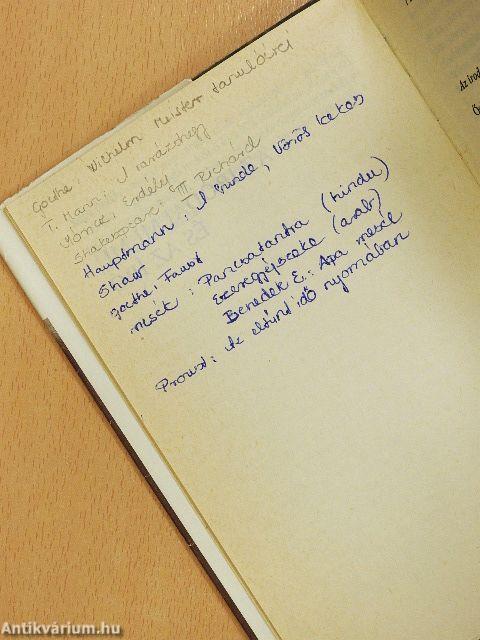 Goethe Wilhelm Meister tanulóévei
T. Mann: A varázshegy
Móricz: Erdély
Shakespeare: III. Richárd
Hauptmann: A bunda, Vörös kakas
Shaw
Goethe: Faust
mesék: Pancsatantra (hindu)
Ezeregyéjszaka (arab)
Benedek E.: Apa mesél
Proust: Az eltünt idő nyomában
Az irod
Antikvárium.hu